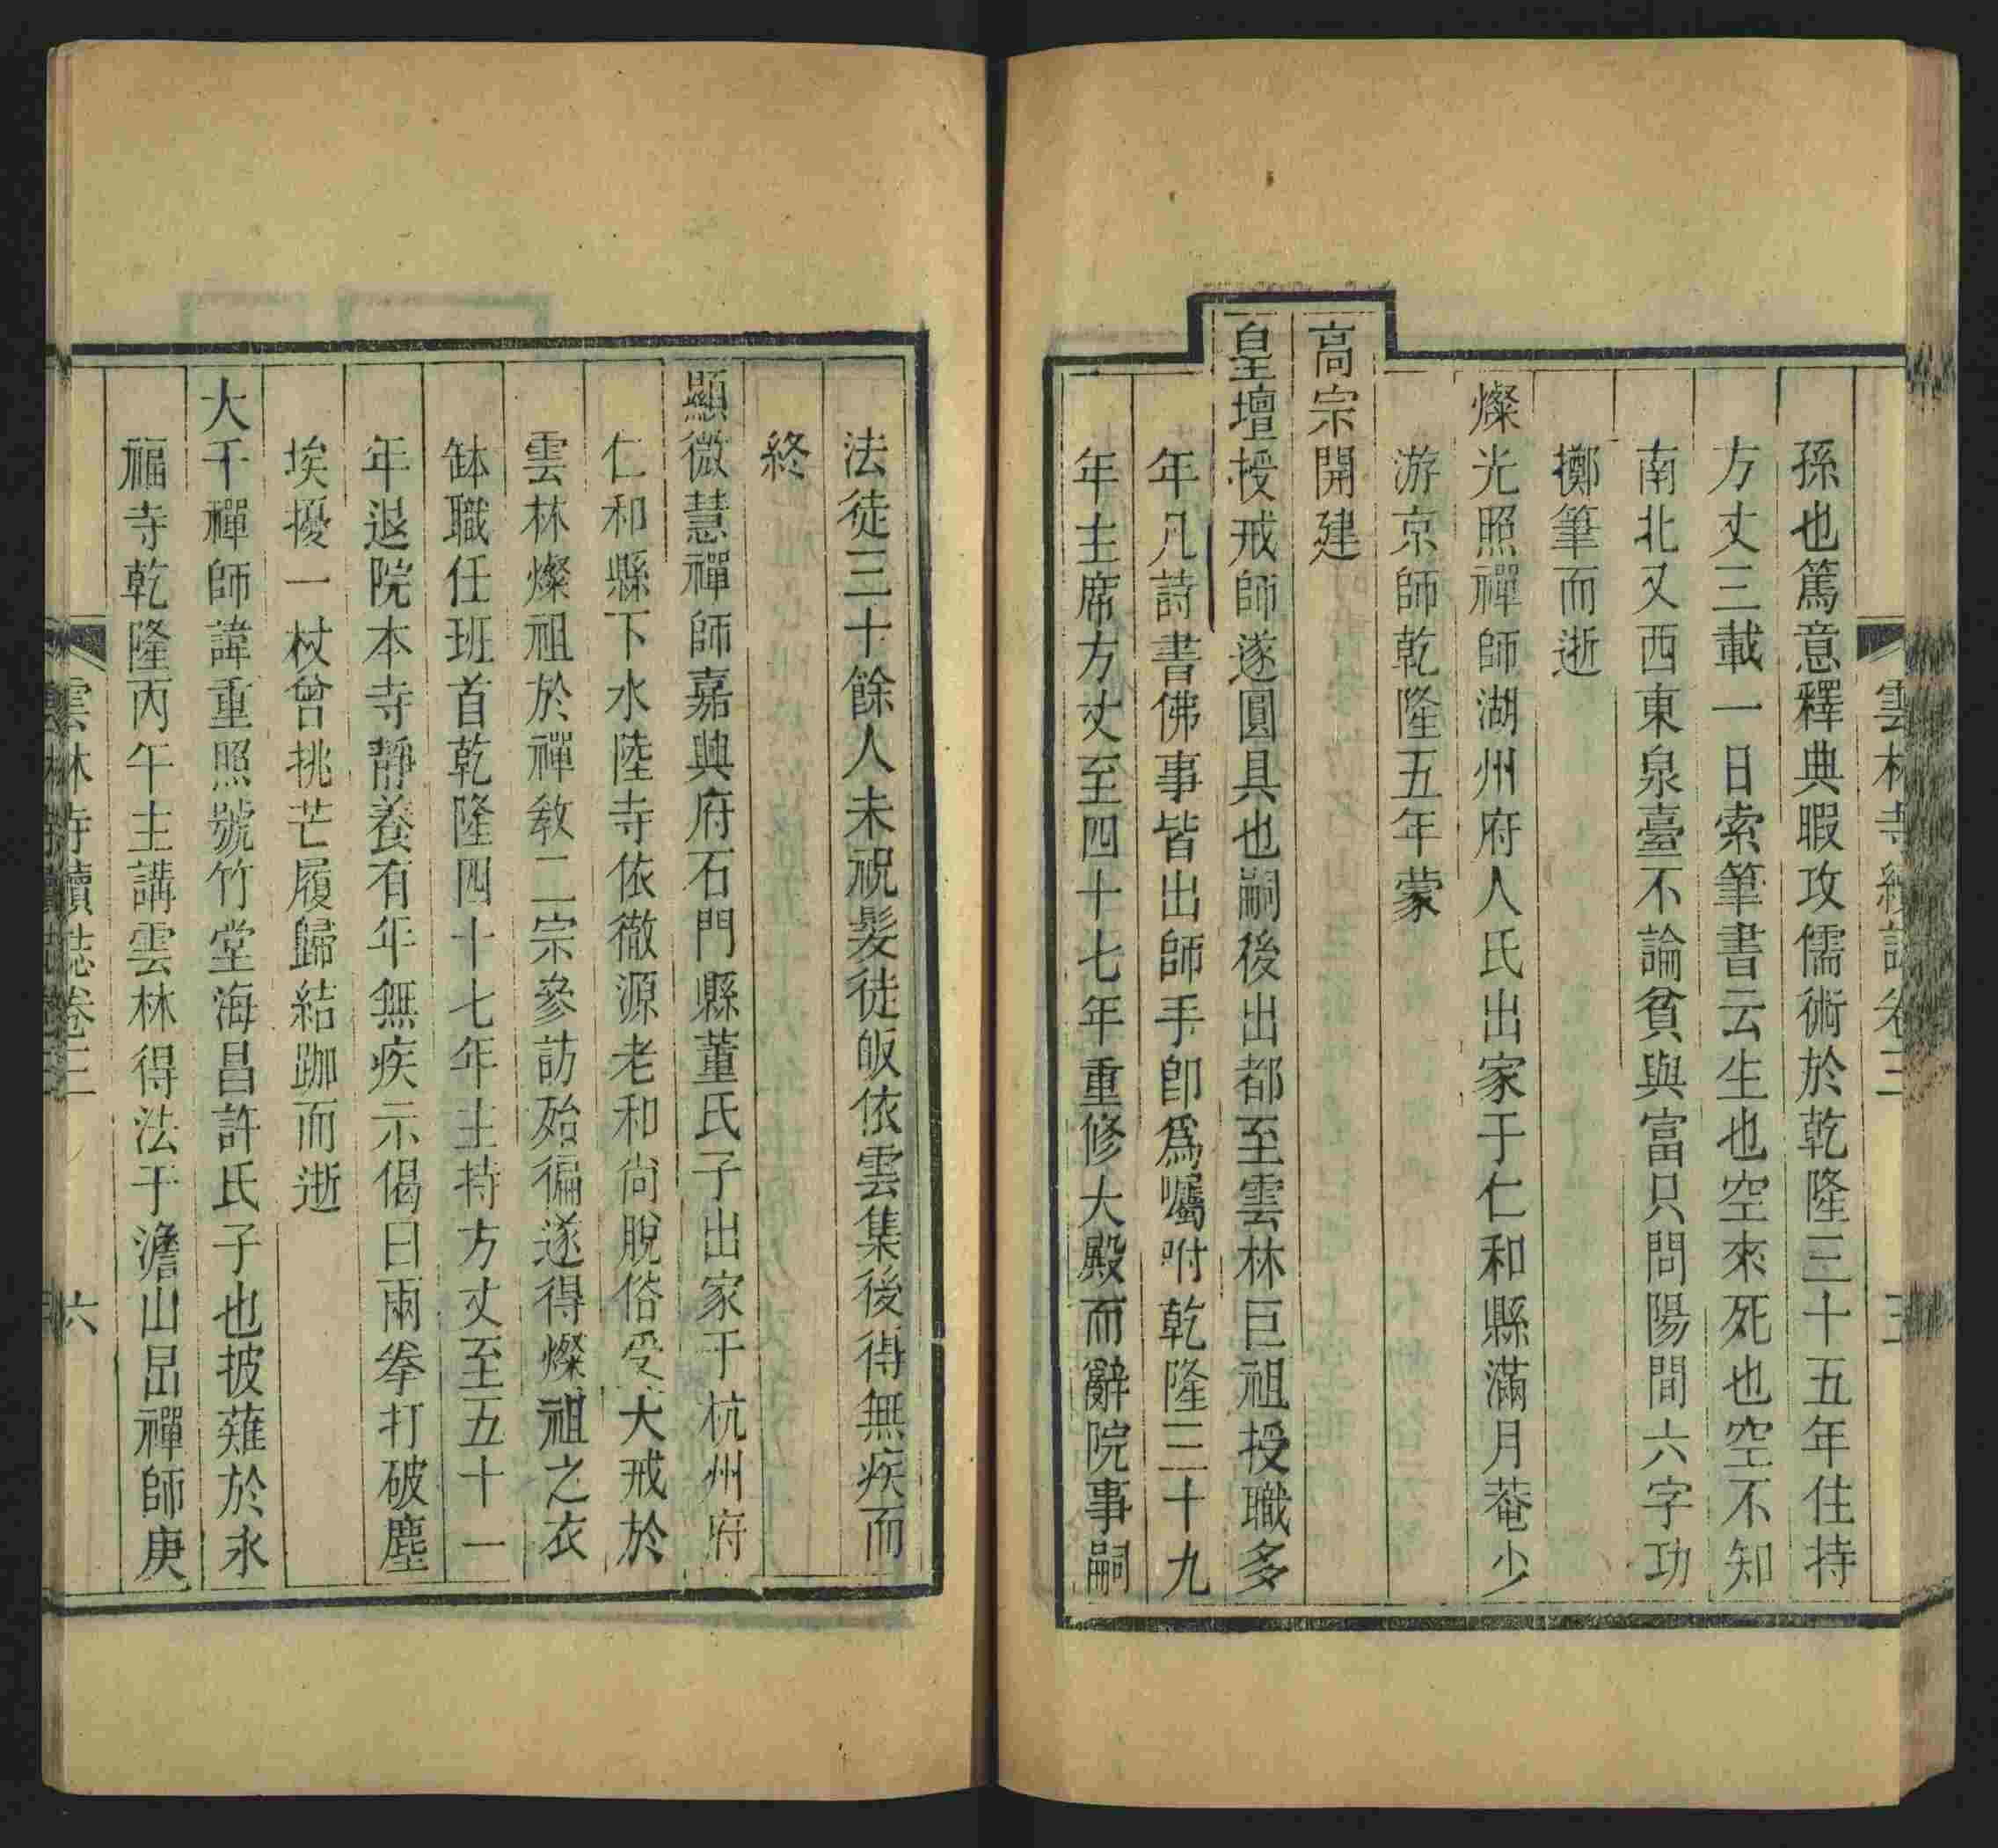 雲林寺續誌卷三
孫也篤意釋典暇攻儒術於乾隆三十五年住持
方丈三載一日索筆書云生也空來死也空不知
南北又西東泉臺不論貧與富只問陽間六字功
擲筆而逝
燦光照禪師湖州府人氏出家于仁和縣滿月菴少
游京師乾隆五年蒙
高宗開建
皇壇授戒師遂圓具也嗣後出都至雲林巨祖授職多
年凡詩書佛事皆出師手卽爲囑咐乾隆三十九
年主席方丈至四十七年重修大殿而辭院事嗣
法徒三十餘人未祝髮徒皈依雲集後得無疾而
終
顯微慧禪師嘉興府石門縣董氏子出家于杭州府
仁和縣下水陸寺依徹源老和尙脫俗受大戒於
雲林燦祖於禪敎二宗參訪殆徧遂得燦祖之衣
缽職任班首乾隆四十七年主持方丈至五十一
年退院本寺靜養有年無疾示偈曰兩拳打破塵
埃擾一杖曾挑芒履歸結跏而逝
大千禪師諱重照號竹堂海昌許氏子也披薙於永
福寺乾隆丙午主講雲林得法于澹山昷禪師庚
雲林寺續誌卷三
六